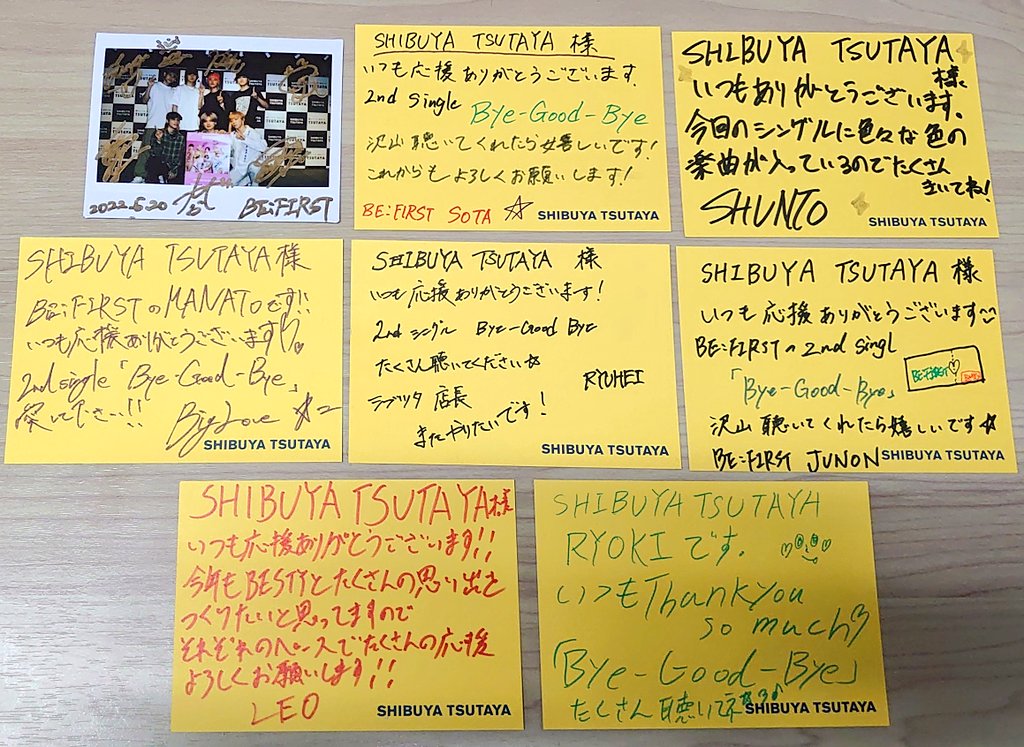 2022.6.20
BE:FIRST
SHIBUYA TSUTAYA 様
いつも応援ありがとうございます.
2nd single Bye-Good-Bye
沢山聴いてくれたら嬉しいです!
これからもよろしくお願いします!
BE:FIRST SOTA ☆
SHIBUYA TSUTAYA
SHIBUYA TSUTAYA 様
いつもありがとうございます.
今回のシングルに色々な色の
楽曲が入っているのでたくさん
きいてね!
SHUNTO
SHIBUYA TSUTAYA
SHIBUYA TSUTAYA 様
BE:FIRSTのMANATOです!!
いつも応援ありがとうございます!
2nd single「Bye-Good-Bye」
愛して下さい!!
Big Love
SHIBUYA TSUTAYA
SHIBUYA TSUTAYA 様
いつも応援ありがとうございます!
2nd シングル Bye-Good Bye
たくさん聴いてください☆
RYUHEI
シブツタ 店長
またやりたいです!
SHIBUYA TSUTAYA
SHIBUYA TSUTAYA 様
いつも応援ありがとうございます
BE:FIRSTの2nd singl
「Bye-Good-Bye」
BE:FIRST
沢山聴いてくれたら嬉しいです☆
BE:FIRST JUNON
SHIBUYA TSUTAYA
SHIBUYA TSUTAYA 様
いつも応援ありがとうございます!!
今年もBESTYとたくさんの思い出を
つくりたいと思ってますので
それぞれのペースでたくさんの応援
よろしくお願いします!!
LEO
SHIBUYA TSUTAYA
SHIBUYA TSUTAYA
RYOKIです.
いつもThank you
so much
「Bye-Good-Bye」
たくさん聴いてネ
SHIBUYA TSUTAYA